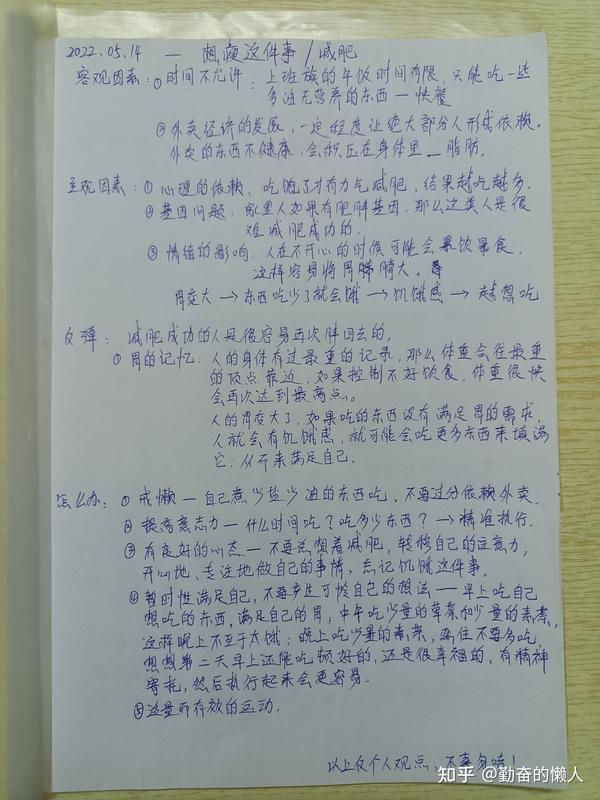 2022.05.14 — 想瘦这件事/减肥
客观因素：①时间不允许：上班族的午饭时间有限，只能吃一些
多油无营养的东西—快餐
②外卖经济的发展，一定程度让绝大部分人形成依赖。
外卖的东西不健康，会积压在身体里—脂肪。
主观因素：①心理的依赖，吃饱了才有力气减肥，结果越吃越多。
②基因问题：家里人如果有肥胖基因，那么这类人是很
难减肥成功的。
③情绪的影响：人在不开心的时候可能会暴饮暴食，
这样容易将胃撑大。
胃变大→东西吃少了就会饿→饥饿感→越想吃
反弹：减肥成功的人是很容易再次胖回去的，
①胃的记忆：人的身体有过最重的记录，那么体重会往最重
的顶点靠近，如果控制不好饮食，体重很快
会再次达到最高点。
人的胃变大了，如果吃的东西没有满足胃的需求，
人就会有饥饿感，就可能会吃更多东西来填满
它，从而来满足自己。
怎么办：①戒懒—自己煮少盐少油的东西吃，不要过分依赖外卖。
②提高意志力—什么时间吃？吃多少东西？→精准执行。
③有良好的心态—不要总想着减肥，转移自己的注意力，
开心地、专注地做自己的事情，忘记饥饿这件事。
④暂时性满足自己，不要产生可怜自己的想法——早上吃自己
想吃的东西，满足自己的胃，中午吃少量的荤菜和少量的素菜，
这样晚上不至于太饿；晚上吃少量的素菜，忍住不要多吃，
想想第二天早上还能吃顿好的，还是很幸福的，有精神
寄托，然后执行起来会更容易。
⑤适量而有效的运动。
以上仅个人观点，不喜勿喷！
知乎 @勤奋的懒人